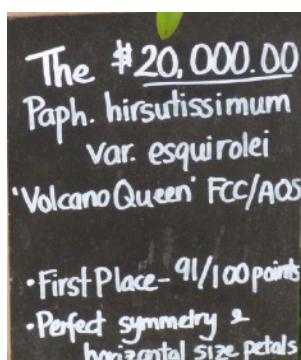 The $20,000.00
Paph. hirsutissimum
var. esquirolei
'Volcano Queen' FCC/AOS
• First Place - 91/100 points
• Perfect symmetry &
horizontal size petals